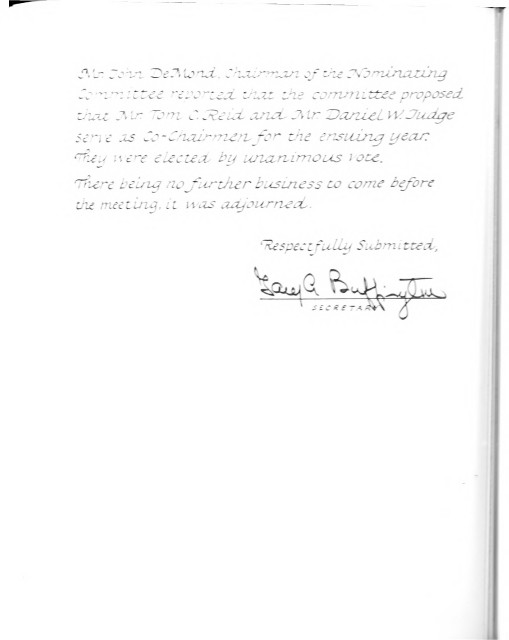 Mr. John DeMond, Chairman of the Nominating
Committee reported that the committee proposed
that Mr. Tom C. Reid and Mr. Daniel W. Judge
serve as Co-Chairmen for the ensuing year.
They were elected by unanimous vote.
There being no further business to come before
the meeting, it was adjourned.
Respectfully Submitted,
Gary A Buffington
SECRETARY